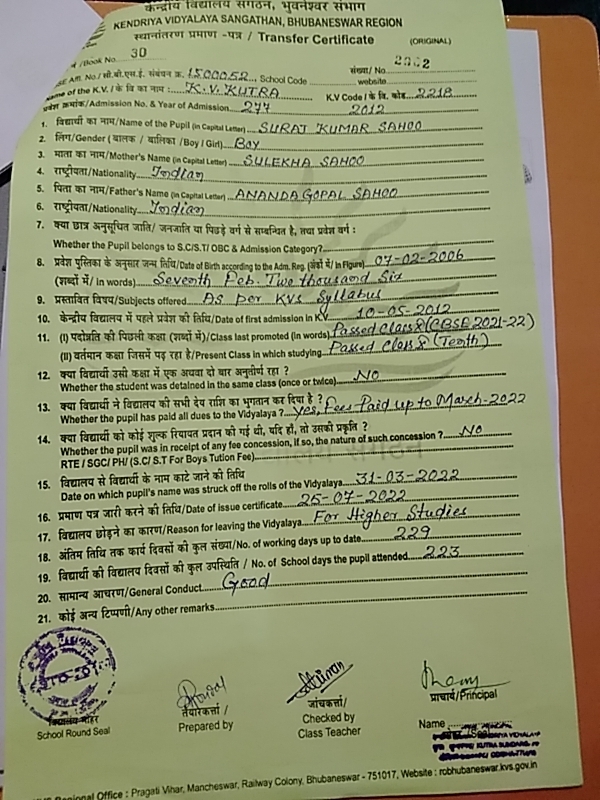 केन्द्रीय विद्यालय संगठन, भुवनेश्वर संभाग
KENDRIYA VIDYALAYA SANGATHAN, BHUBANESWAR REGION
स्थानांतरण प्रमाण -पत्र / Transfer Certificate (ORIGINAL)
/Book No. 30 संख्या/ No.
Aff. No./ सी.बी.एस.ई. संबंधन क्र. 1500052, School Code website
Name of the K.V./ के वि का नाम : K.V. KUTRA K.V Code / के वि. कोड 2218
प्रवेश क्रमांक/Admission No. & Year of Admission. 277 2012
1. विद्यार्थी का नाम/Name of the Pupil (in Capital Letter) SURAJ KUMAR SAHOO
2. लिंग/Gender ( बालक / बालिका /Boy / Girl) Boy
3. माता का नाम/Mother's Name (in Capital Letter) SULEKHA SAHOO
4. राष्ट्रीयता/Nationality Indian
5. पिता का नाम/Father's Name (in Capital Letter) ANANDA GOPAL SAHOO
6. राष्ट्रीयता/Nationality Indian
7. क्या छात्र अनुसूचित जाति/ जनजाति या पिछड़े वर्ग से सम्बन्धित है, तथा प्रवेश वर्ग :
Whether the Pupil belongs to S.C/S.T/ OBC & Admission Category?
8. प्रवेश पुस्तिका के अनुसार जन्म तिथि/Date of Birth according to the Adm. Reg. (अंकों में/ in Figure) 07-02-2006
(शब्दों में/ in words) Seventh Feb. Two thousand Six
9. प्रस्तावित विषय/Subjects offered As per KVS Syllabus
10. केन्द्रीय विद्यालय में पहले प्रवेश की तिथि/Date of first admission in K.V 10-05-2012
11. (I) पदोन्नति की पिछली कक्षा (शब्दों में)/Class last promoted (In words) Passed Class X (CBSE 2021-22)
(II) वर्तमान कक्षा जिसमें पढ़ रहा है/Present Class in which studying Passed Class X (Tenth)
12. क्या विद्यार्थी उसी कक्षा में एक अथवा दो बार अनुतीर्ण रहा ?
Whether the student was detained in the same class (once or twice) NO
13. क्या विद्यार्थी ने विद्यालय की सभी देय राशि का भुगतान कर दिया है ?
Whether the pupil has paid all dues to the Vidyalaya ? Yes, Fees Paid up to March-2022
14. क्या विद्यार्थी को कोई शुल्क रियायत प्रदान की गई थी, यदि हाँ, तो उसकी प्रकृति ?
Whether the pupil was in receipt of any fee concession, If so, the nature of such concession ? NO
RTE / SGC/ PH/ (S.C/ S.T For Boys Tution Fee)
15. विद्यालय से विद्यार्थी के नाम काटे जाने की तिथि
Date on which pupil's name was struck off the rolls of the Vidyalaya 31-03-2022
16. प्रमाण पत्र जारी करने की तिथि/Date of issue certificate 25-07-2022
17. विद्यालय छोड़ने का कारण/Reason for leaving the Vidyalaya For Higher Studies
18. अंतिम तिथि तक कार्य दिवसों की कुल संख्या/No. of working days up to date 229
19. विद्यार्थी की विद्यालय दिवसों की कुल उपस्थिति / No. of School days the pupil attended 223
20. सामान्य आचरण/General Conduct Good
21. कोई अन्य टिप्पणी/Any other remarks
विद्यालय मोहर
School Round Seal
तैयारकर्त्ता/
Prepared by
जांचकर्त्ता/
Checked by
Class Teacher
प्राचार्य/Principal
Name
Seal
Regional Office : Pragati Vihar, Mancheswar, Railway Colony, Bhubaneswar - 751017, Website : robhubaneswar.kvs.gov.in